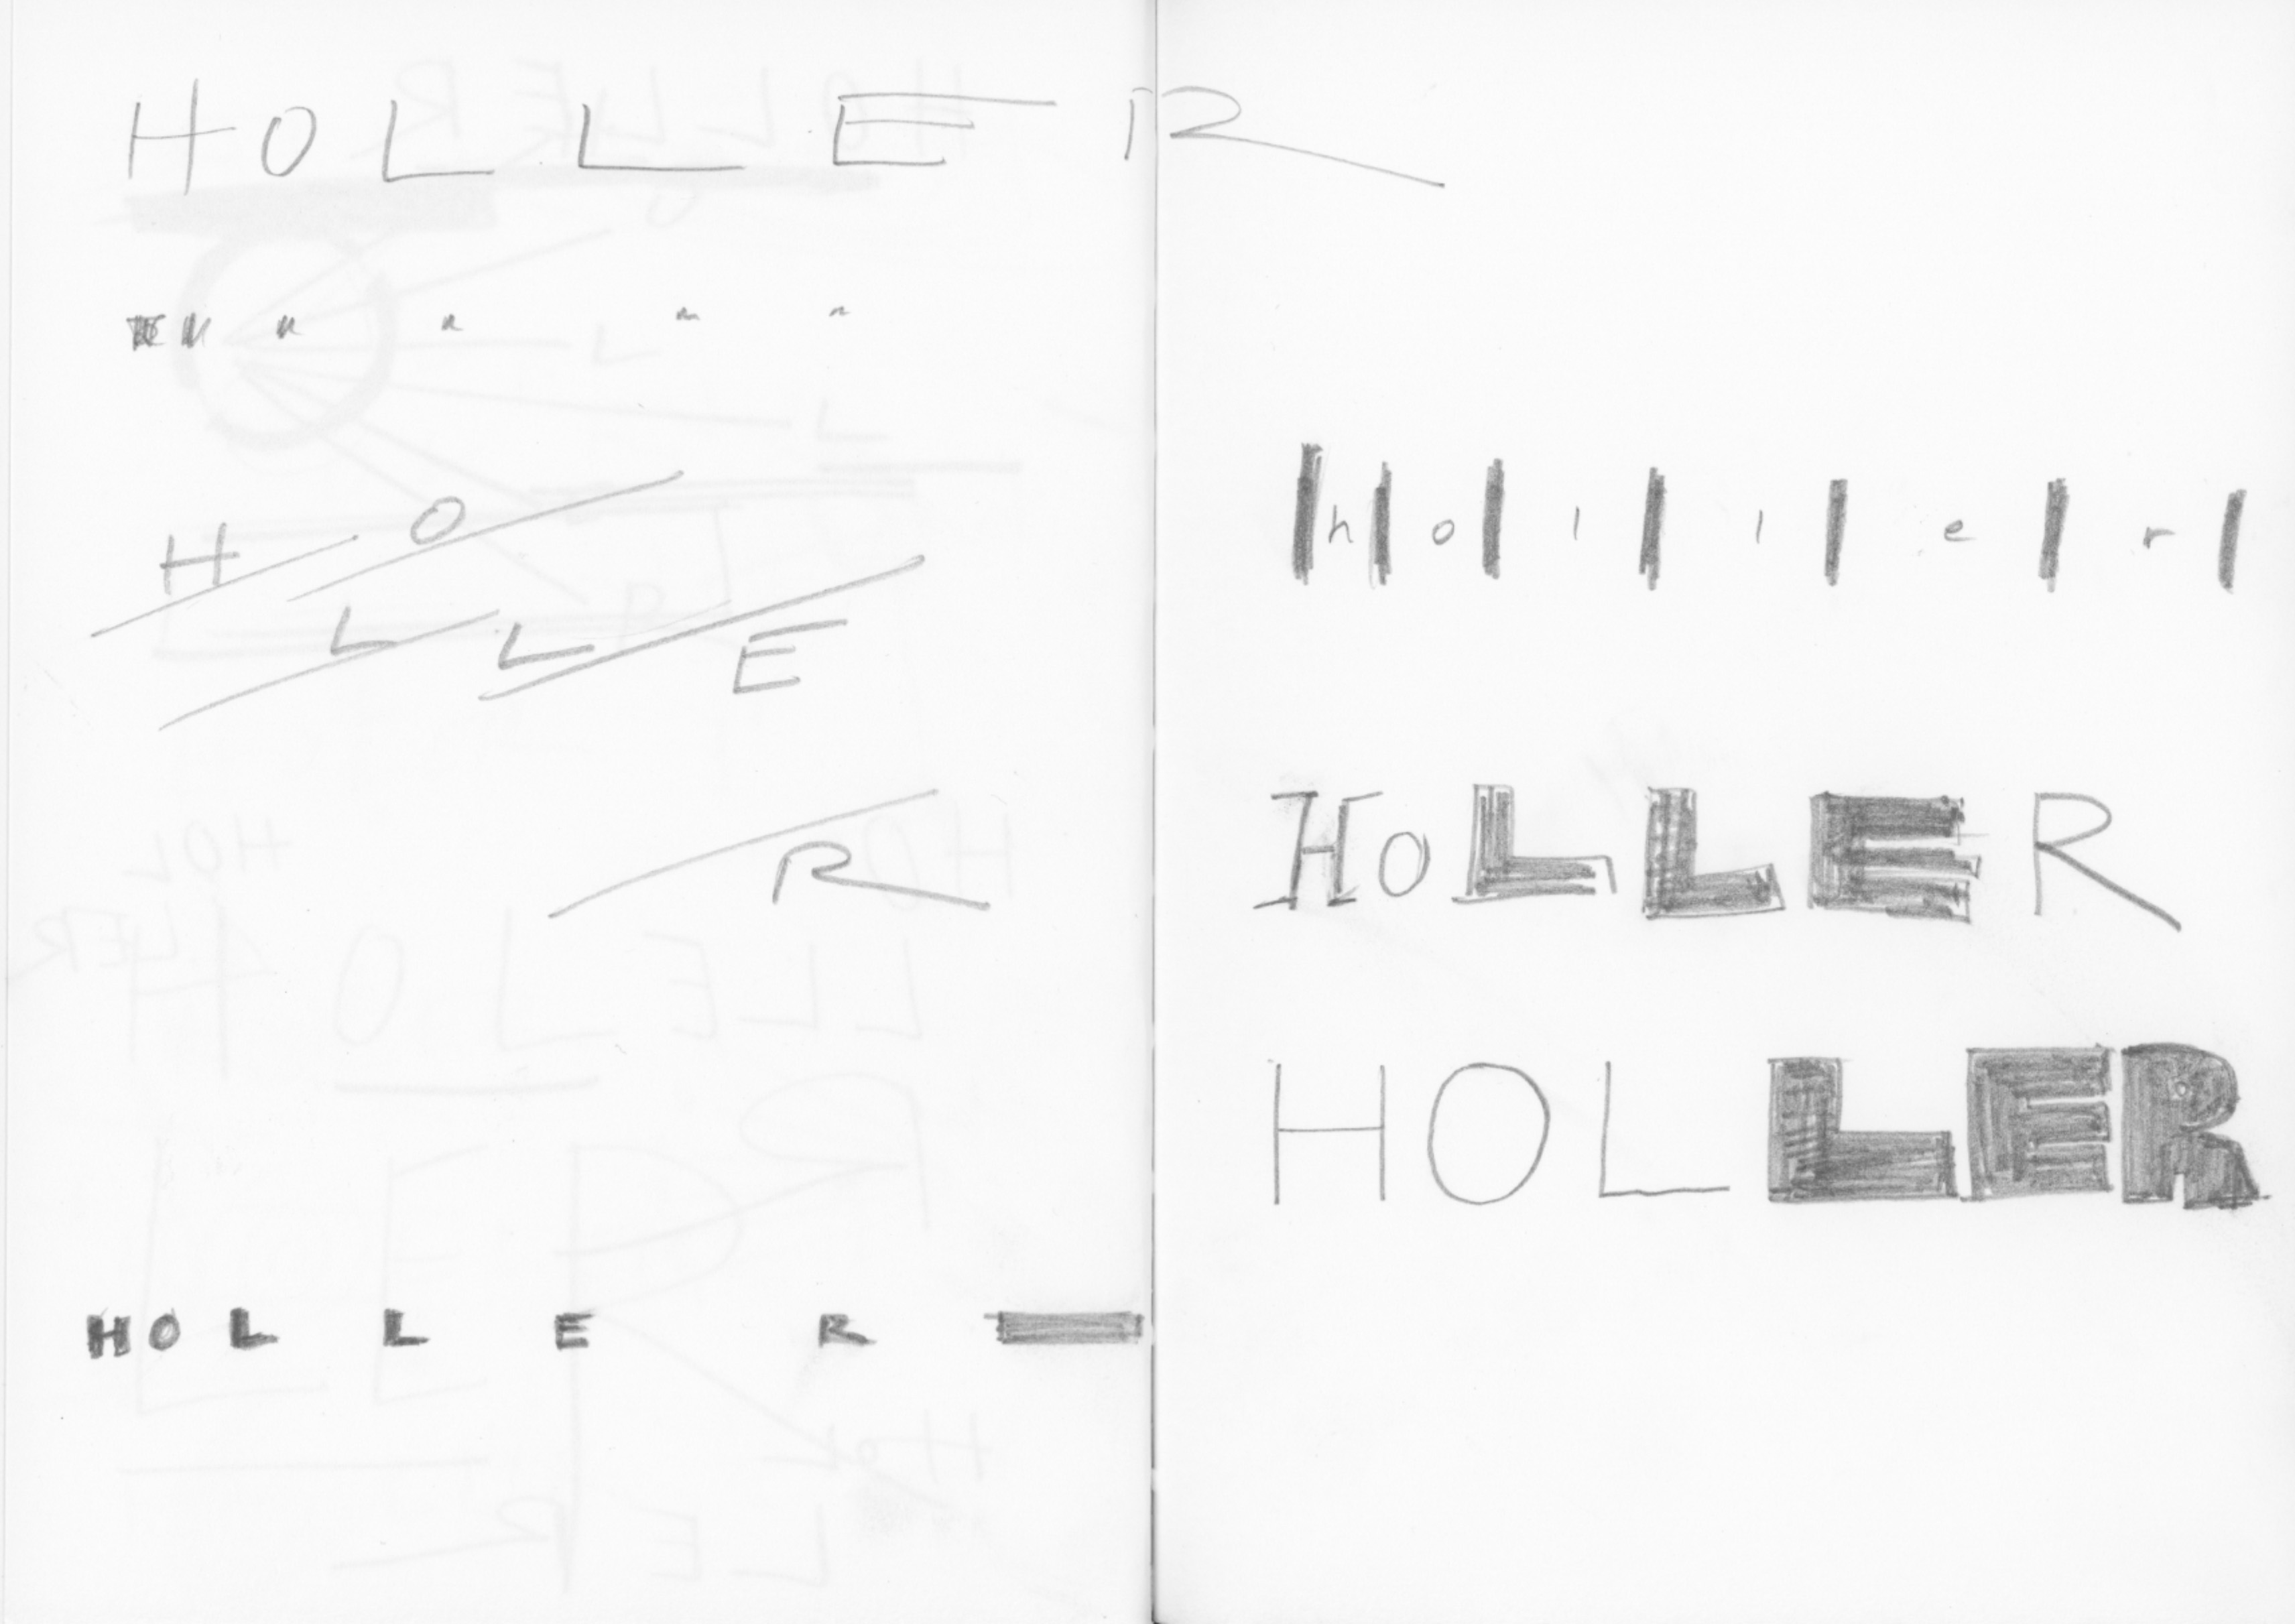 HOLLER
HO
LLE
R
HOLLER
holler
HOLLER
HOLLER